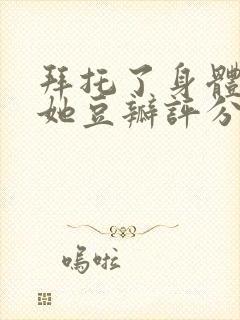 拜托了身體
她豆瓣評分
嗚啦